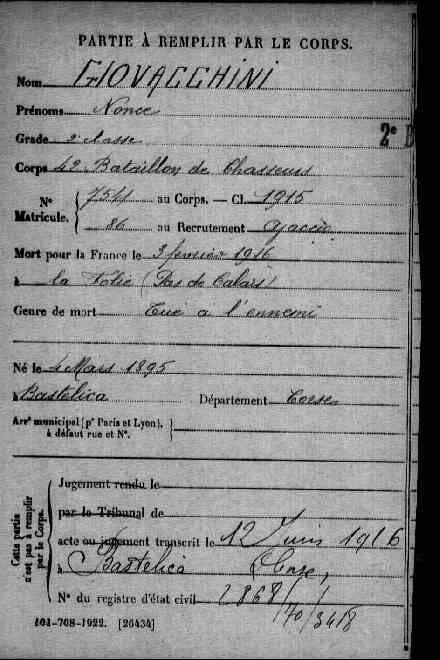 PARTIE À REMPLIR PAR LE CORPS.
Nom GIOVACCHINI
Prénoms Nonce
Grade 2e classe
2e
Corps 42 Bataillon de Chasseurs
Nº Matricule. 7544 au Corps. — Cl. 1915
86 au Recrutement Ajaccio
Mort pour la France le 3 février 1916
à la Folie (Pas de Calais)
Genre de mort Tué a l'ennemi
Né le 4 Mars 1895
à Bastelica Département Corse
Arrt municipal (pr Paris et Lyon), à défaut rue et Nº.
Cette partie n'est pas à remplir par le Corps.
Jugement rendu le
par le Tribunal de
acte ou jugement transcrit le 12 Juin 1916
à Bastelica Corse,
Nº du registre d'état civil 2868/1
170/3418
101-708-1922. [26434]